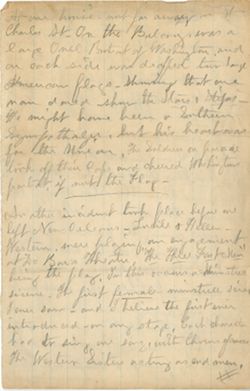 At one house not far away on
Charles St. On the Balcony, was a
large Oval Portrait of Washington, and
on each side was draped two large
American flags - showing that one
man dared show the Stars & Stripes
He might have been a Southern
Sympathizer, but his heart was
for the Union, The Soldiers on parade
took off their Caps and cheered Washington
portrait and the Flag -
Another incident took place before we
left New Orleans - Lucille & Helen
Western, were playing an engagement
at the Theatre "The Three Fast Men"
being the play, In this was a Minstrel
scene. The first female minstrels since
I ever saw - and I believe the first ever
introduced on any stage, Each
had to sing one song, with chorus from
The Western Sisters acting as end men,